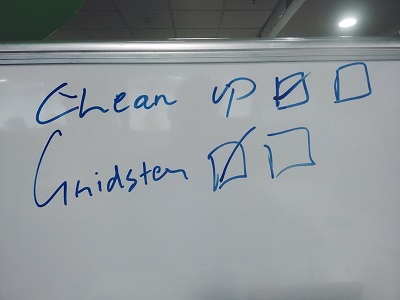 Clean up ☑ ☐
Gridsten ☑ ☐